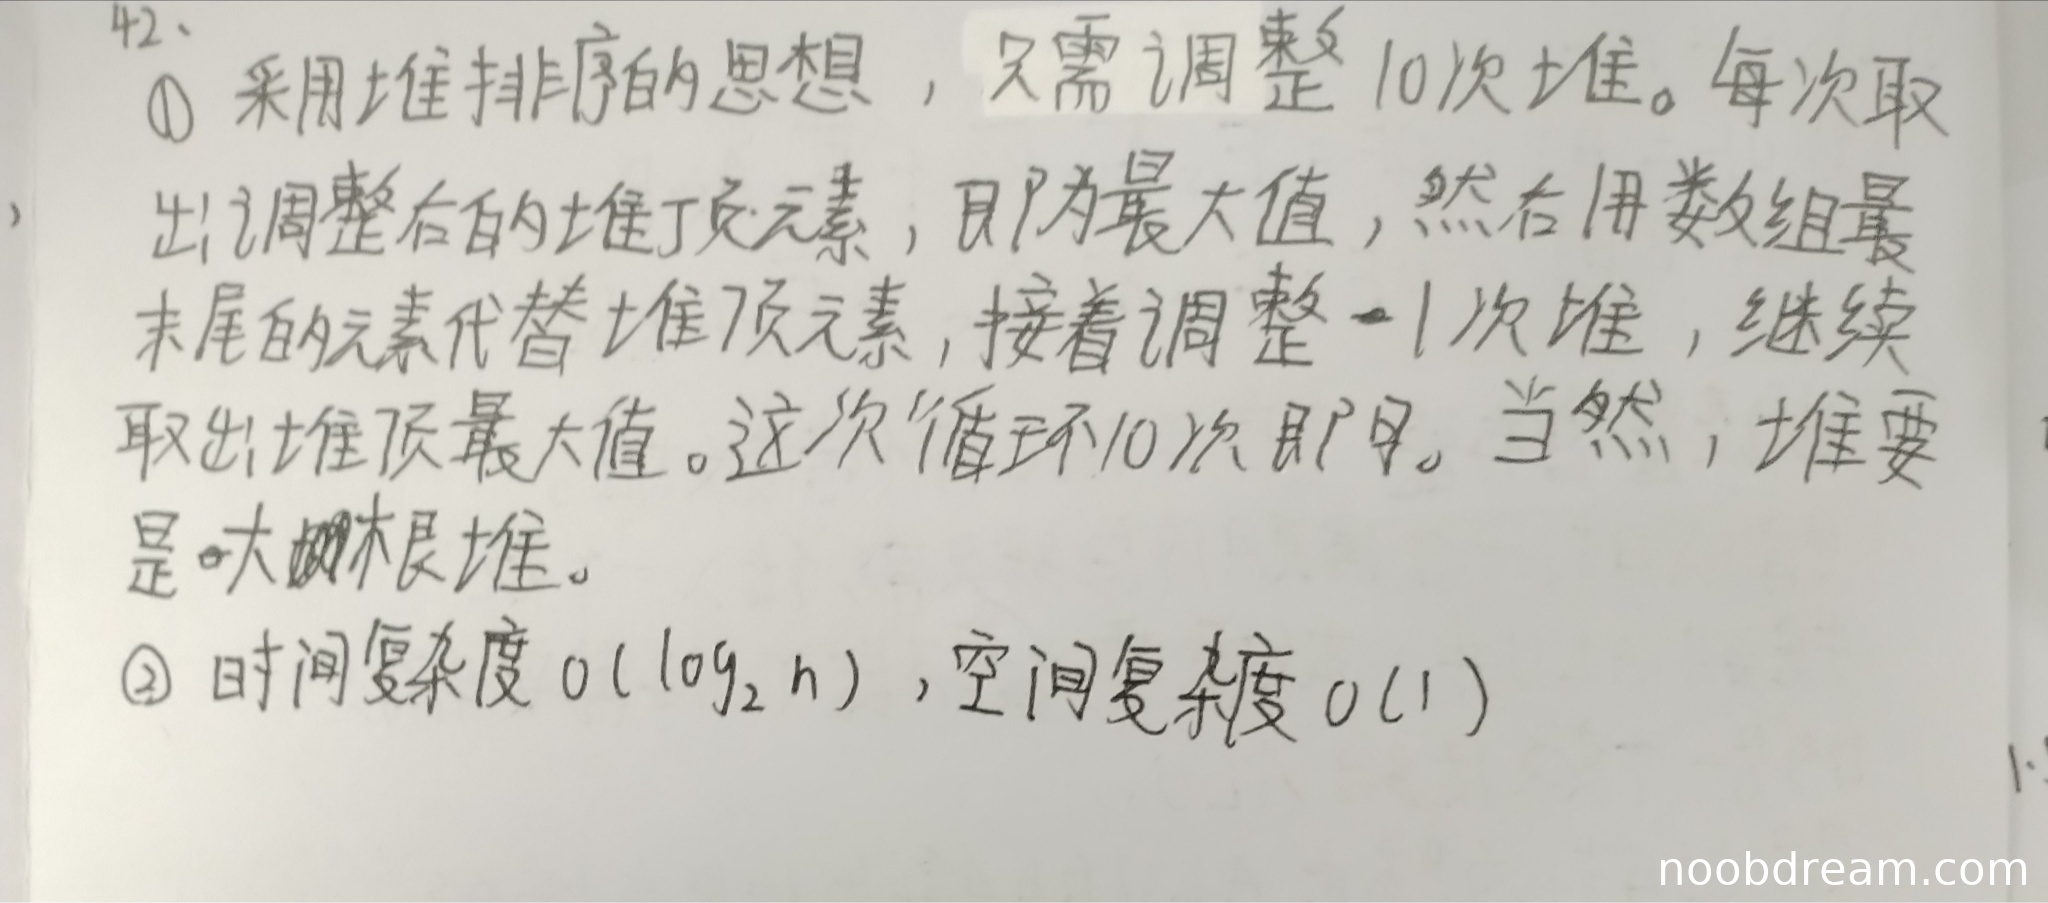 42、
① 采用堆排序的思想，只需调整10次堆。每次取
出调整后的堆顶元素，即为最大值，然后用数组最
末尾的元素代替堆顶元素，接着调整1次堆，继续
取出堆顶最大值。这次循环10次即可。当然，堆要
是大根堆。
② 时间复杂度 O(log₂n)，空间复杂度 O(1)
noobdream.com